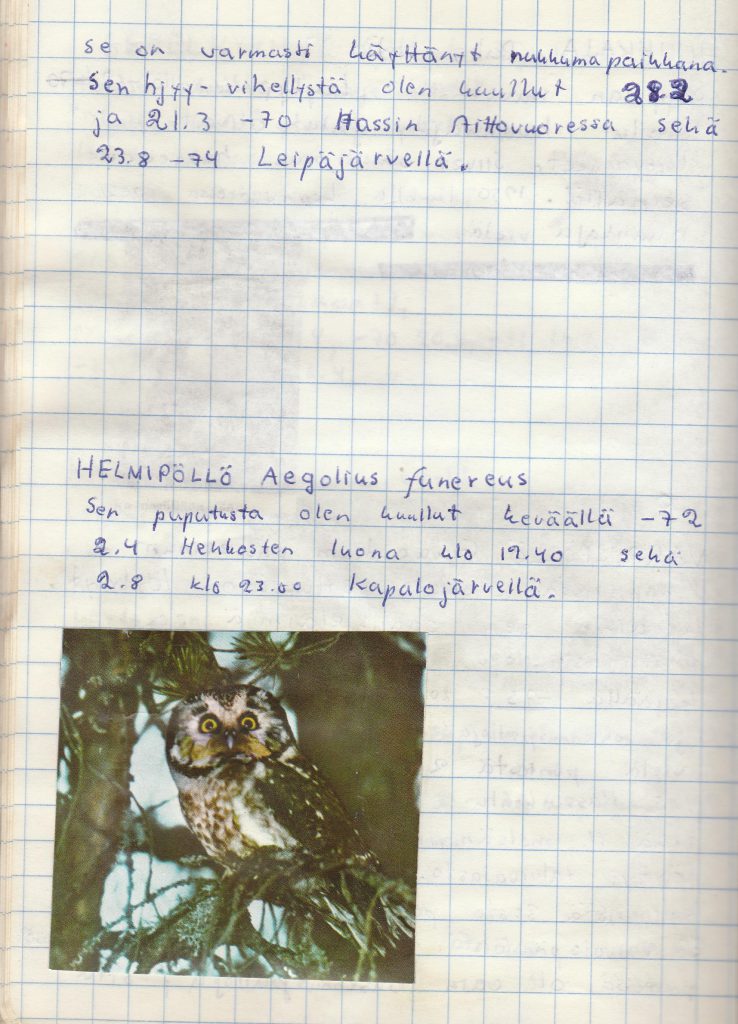 se on varmasti käyttänyt nukkumapaikkana.
Sen hjyy-vihellystä olen kuullut 282
ja 21.3 -70 Hassin Aittovuoressa sekä
23.8 -74 Leipäjärvellä.
HELMIPÖLLÖ Aegolius funereus
Sen puputusta olen kuullut keväällä -72
2.4 Heikosten luona klo 19.40 sekä
2.8 klo 23.00 Kapalojärvellä.